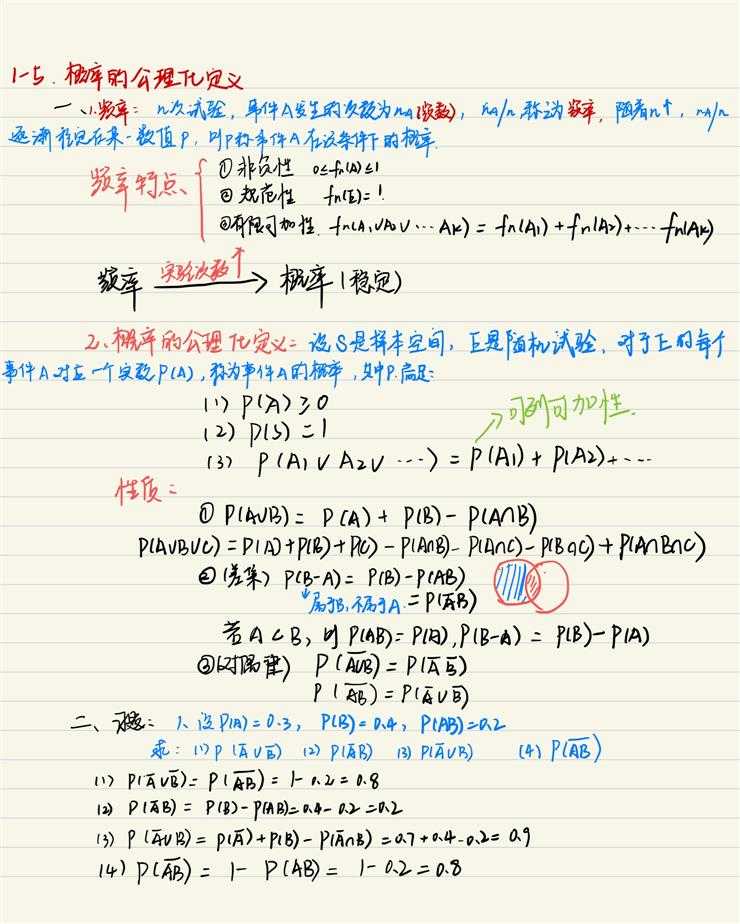 1-5. 概率的公理化定义
一、1.频率: n次试验, 事件A发生的次数为nA(频数), nA/n 称为频率, 随着n↑, nA/n
逐渐稳定在某一数值P, 则P称事件A在该条件下的概率.
频率特点
① 非负性 0≤fn(A)≤1
② 规范性 fn(E)=1.
③有限可加性. fn(A1∪A2∪⋯Ak) = fn(A1)+fn(A2)+⋯fn(Ak)
频率 实验次数↑ → 概率(稳定)
2、概率的公理化定义: 设S是样本空间, E是随机试验. 对于E的每个
事件A对应一个实数P(A), 称为事件A的概率, 其中P.满足:
(1) P(A)≥0
→可列可加性.
(2) P(S)=1
(3) P(A1∪A2∪⋯) = P(A1)+P(A2)+⋯
性质:
① P(A∪B)= P(A)+ P(B)- P(A∩B)
P(A∪B∪C)=P(A)+P(B)+P(C)-P(A∩B)-P(A∩C)-P(B∩C)+P(A∩B∩C)
②(差集) P(B-A)= P(B)-P(AB)
属于B,不属于A. = P(A̅B)
若A⊂B, 则P(AB)=P(A), P(B-A) = P(B)-P(A)
③(对偶律) P(A̅∪̅B̅)=P(A̅ B̅)
P(A̅B̅)=P(A̅∪B̅)
二、 1、设P(A)=0.3, P(B)=0.4, P(AB)=0.2
求: (1)P(A̅∪B̅) (2)P(A̅B) (3)P(A̅∪B) (4)P(A̅B̅)
(1) P(A̅∪B̅)=P(A̅B̅)=1-0.2=0.8
(2) P(A̅B)= P(B)-P(AB)=0.4-0.2=0.2
(3) P(A̅∪B)=P(A̅)+P(B)-P(A̅∩B)=0.7+0.4-0.2=0.9
(4)P(A̅B̅)= 1- P(AB)= 1-0.2=0.8